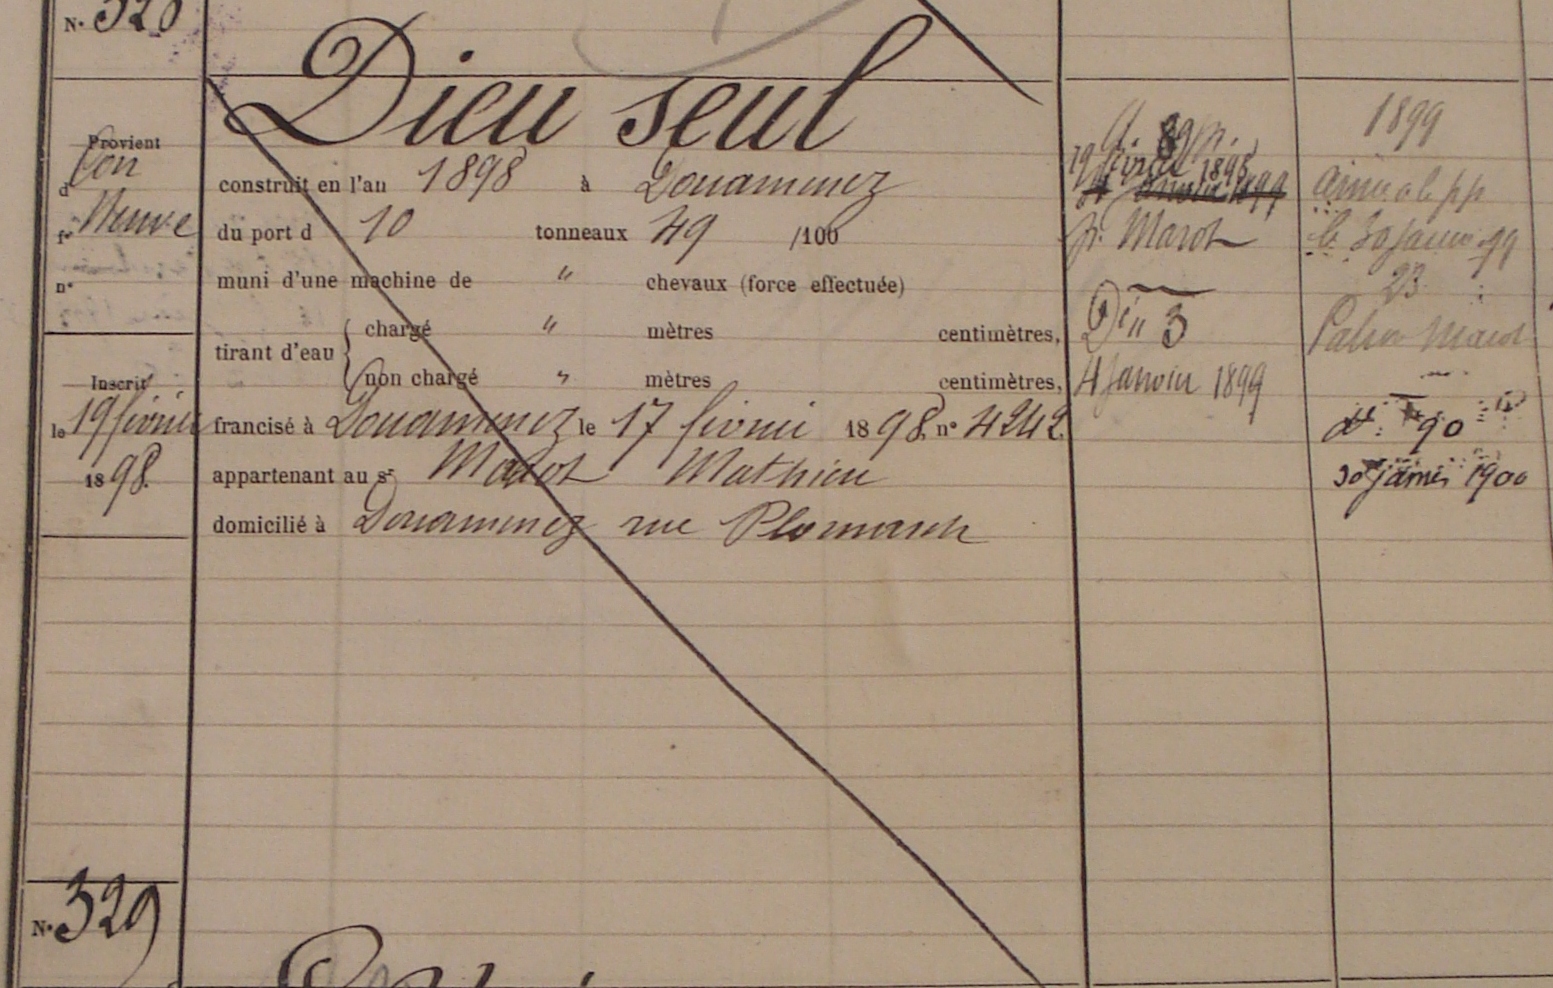 N° 328
Dieu seul
Provient
d Con
fr Neuve
n°
construit en l'an 1898 à Douarnenez
du port d 10 tonneaux 49 /100
muni d'une machine de " chevaux (force effectuée)
tirant d'eau { chargé " mètres centimètres,
non chargé " mètres centimètres,
Inscrit
le 19 février
1898.
francisé à Douarnenez le 17 février 1898, n° 4242.
appartenant au sr Marot Mathieu
domicilié à Douarnenez rue Plomarch
19 février 1898
p. Marot
Dn 3
4 Janvier 1899
1899
le 30 janvier 99
23
Patron Marot
90
30 janvier 1900
N° 329